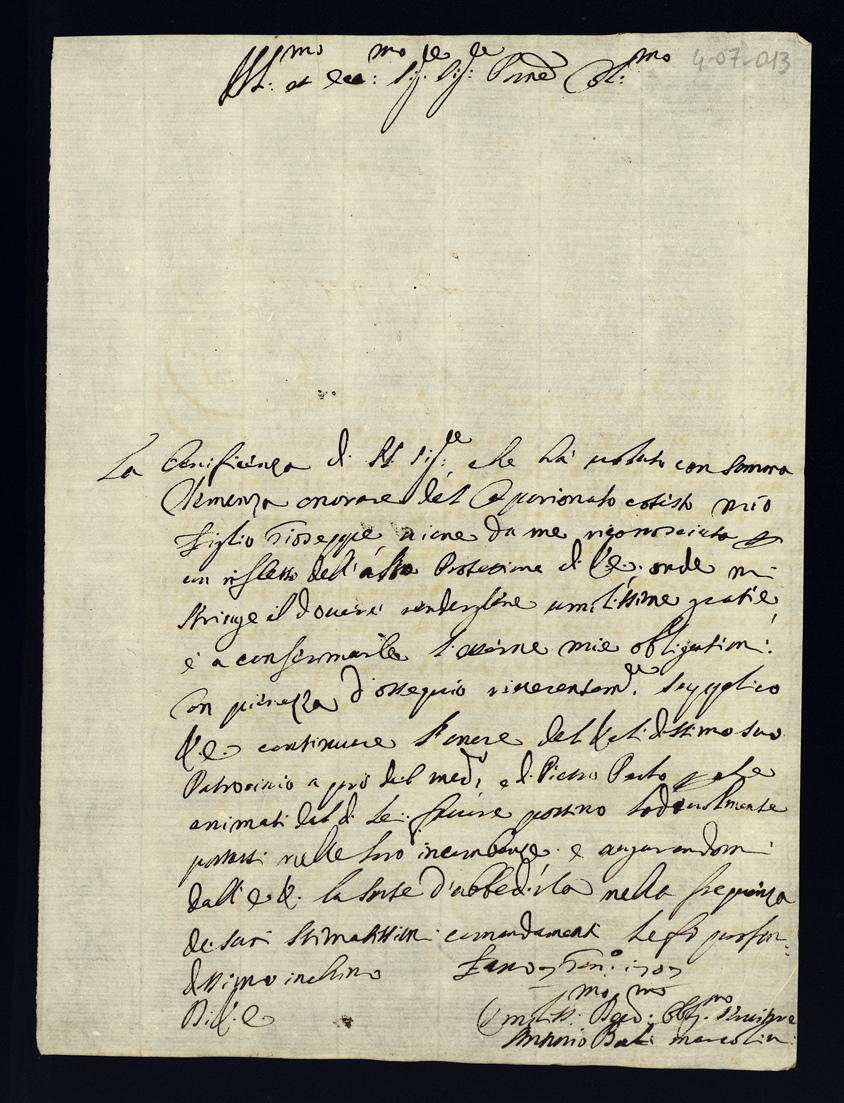 4-07-013
Ill:mo et ecc:mo Sig:re Sig:re Pnre Col:mo
La Benificienza di V.S. Ill. che hà uoluto con somma
Clemenza onorare del mio
Figlio Gioseppe uiene da me riconosciuta p
un riflesso dell'alta Protezione di V.E. onde mi
stringe il douere renderglene umilissime gratie
e a confermarle l'eterne mie obligationi:
Con pienezza d'ossequio riuerentem:te supplico
V.E. continuare l'onore del Ualidissimo suo
Patrocinio a prò del med:o e di Pietro Paolo p che
animati dal di Lei fauore possino lodeuolmente
portarsi nelle loro incombenze. e augurandomi
dall'E.V. la sorte d'obbedirla nella frequenza
de suoi stimatissimi comandamenti Le fò profon:
dissimo inchino Fano 7 Gen:o 1707
Di V.E.
Umiliss:mo Deu:mo Obb:mo Seruitore
Antonio